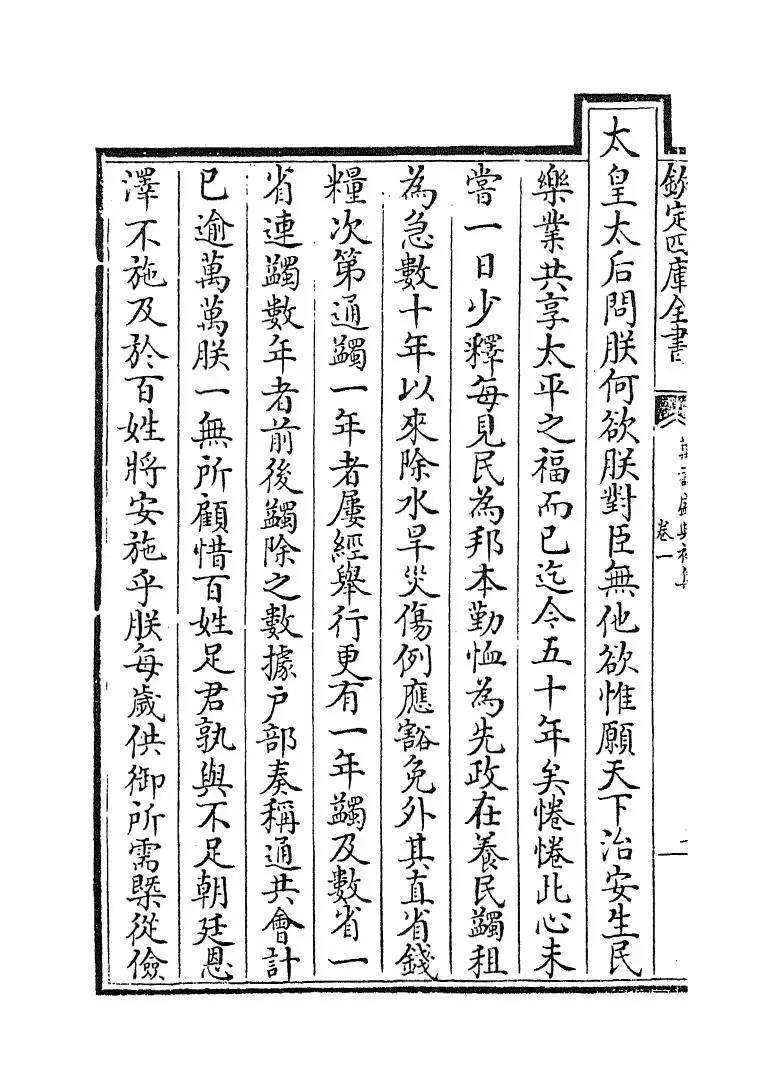 欽定四庫全書
卷一
太皇太后問朕何欲朕對臣無他欲惟願天下治安生民
樂業共享太平之福而已迄今五十年矣惓惓此心未
嘗一日少釋每見民為邦本勤恤為先政在養民蠲租
為急數十年以來除水旱災傷例應豁免外其直省錢
糧次第通蠲一年者屢經舉行更有一年蠲及數省一
省連蠲數年者前後蠲除之數據戶部奏稱通共會計
已逾萬萬朕一無所顧惜百姓足君孰與不足朝廷恩
澤不施及於百姓將安施乎朕每歲供御所需槩從儉